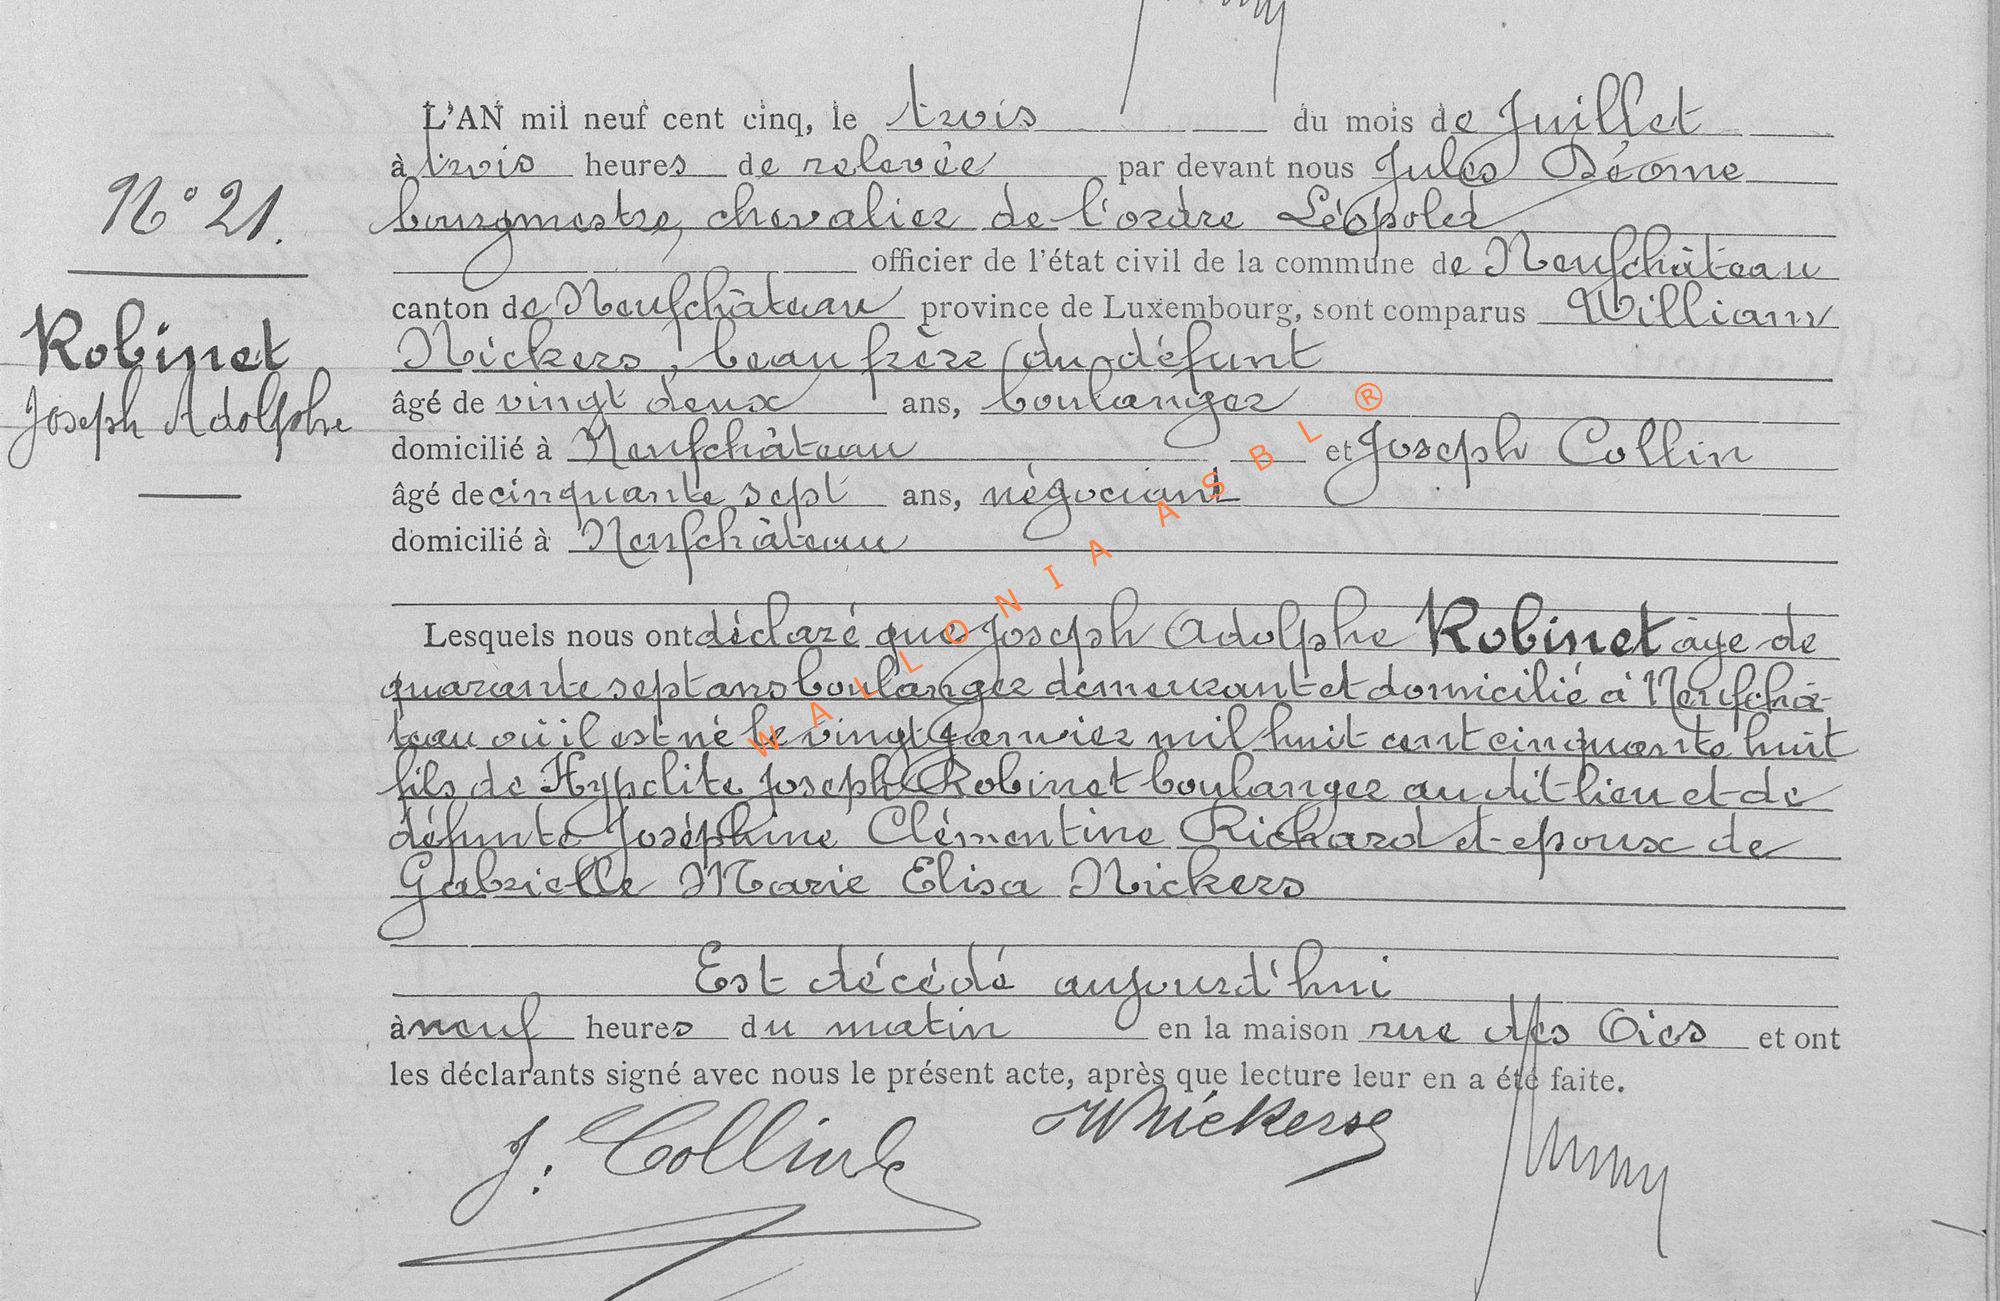 N° 21.
Robinet
Joseph Adolphe
L'AN mil neuf cent cinq, le trois du mois de Juillet
à trois heures de relevée par devant nous Jules
bourgmestre, chevalier de l'ordre Léopold
officier de l'état civil de la commune de Neufchâteau
canton de Neufchâteau province de Luxembourg, sont comparus William
Nickers, beau frère du défunt
âgé de vingt deux ans, boulanger
domicilié à Neufchâteau et Joseph Collin
âgé de cinquante sept ans, négociant
domicilié à Neufchâteau
Lesquels nous ont déclaré que Joseph Adolphe Robinet âge de
quarante sept ans boulanger demeurant et domicilié à Neufchâ-
teau où il est né le vingt janvier mil huit cent cinquante huit
fils de Hypolite Joseph Robinet boulanger au dit lieu et de
défunte Joséphine Clémentine Richard et epoux de
Gabrielle Marie Elisa Nickers
Est décédé aujourd'hui
à neuf heures du matin en la maison rue des Oies et ont
les déclarants signé avec nous le présent acte, après que lecture leur en a été faite.
J. Collin WNickers
WALLONIA ASBL ®